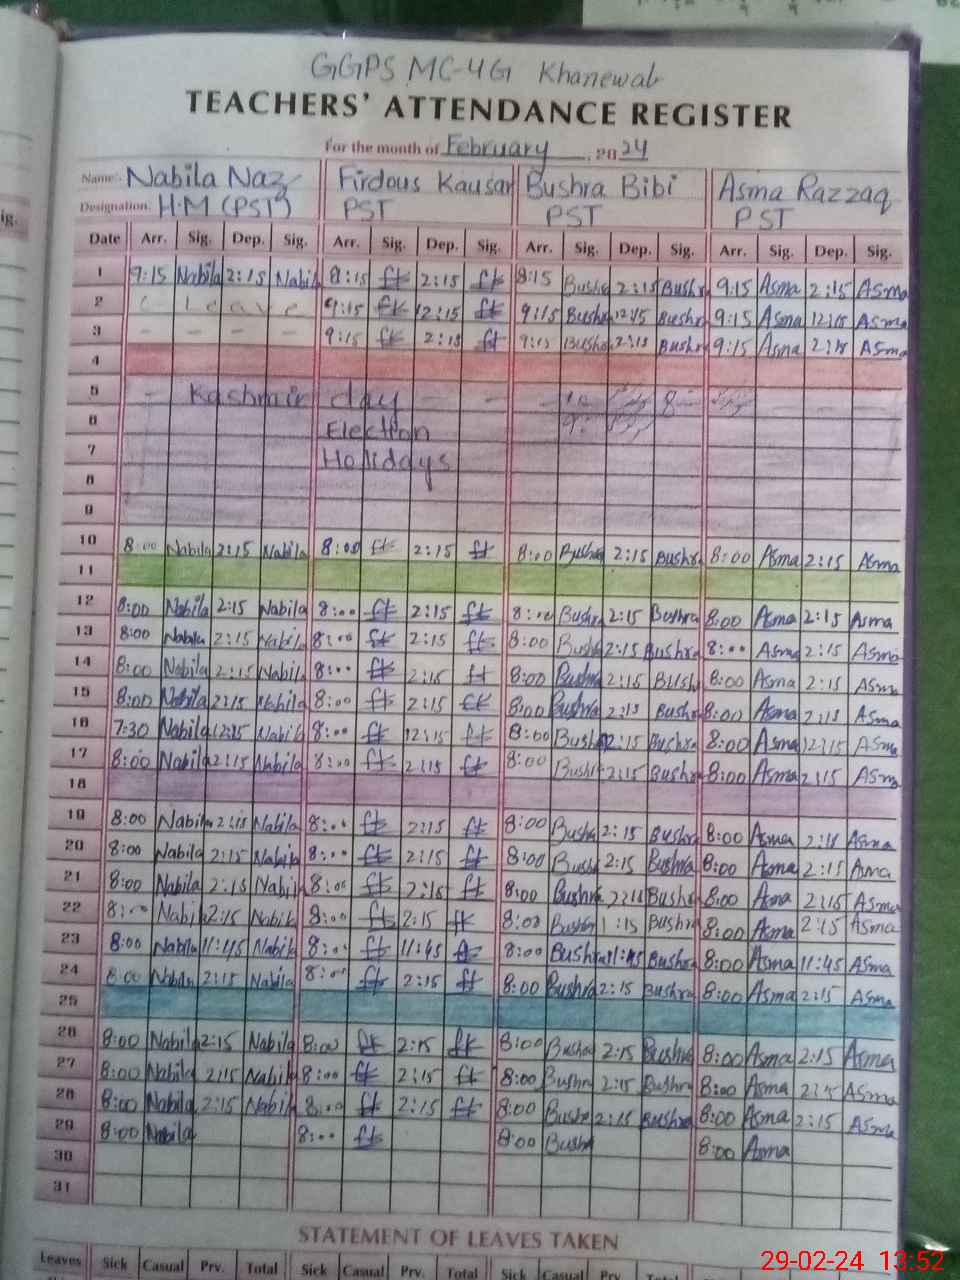 GGPS MC-4G Khanewal
TEACHERS' ATTENDANCE REGISTER
For the month of February, 2024
Name:- Nabila Naz Firdous Kausar Bushra Bibi Asma Razzaq
Designation. H.M (PST) PST PST PST
Date Arr. Sig. Dep. Sig. Arr. Sig. Dep. Sig. Arr. Sig. Dep. Sig. Arr. Sig. Dep. Sig.
1 9:15 Nabila 2:15 Nabil 8:15 fk 2:15 fk 8:15 Bushr 2:15 Bushr 9:15 Asma 2:15 Asma
2 Leave 9:15 fk 12:15 fk 9:15 Bushr 12:15 Bushr 9:15 Asma 12:15 Asma
3 - - - - 9:15 fk 2:15 fk 9:15 Bushr 2:15 Bushr 9:15 Asma 2:15 Asma
4
5 - Kashmir day - -
6 Election
7 Holidays
8
9
10 8:00 Nabila 2:15 Nabila 8:00 fk 2:15 fk 8:00 Bushra 2:15 Bushra 8:00 Asma 2:15 Asma
11
12 8:00 Nabila 2:15 Nabila 8:00 fk 2:15 fk 8:00 Bushra 2:15 Bushra 8:00 Asma 2:15 Asma
13 8:00 Nabila 2:15 Nabila 8:00 fk 2:15 fk 8:00 Bushra 2:15 Bushra 8:00 Asma 2:15 Asma
14 8:00 Nabila 2:15 Nabila 8:00 fk 2:15 fk 8:00 Bushra 2:15 Bush 8:00 Asma 2:15 Asma
15 8:00 Nabila 2:15 Nabila 8:00 fk 2:15 fk 8:00 Bushra 2:15 Bushr 8:00 Asma 2:15 Asma
16 7:30 Nabila 12:15 Nabila 8:00 fk 12:15 fk 8:00 Bush 12:15 Bushra 8:00 Asma 12:15 Asma
17 8:00 Nabila 2:15 Nabila 8:00 fk 2:15 fk 8:00 Bushr 2:15 Bushra 8:00 Asma 2:15 Asma
18
19 8:00 Nabila 2:15 Nabila 8:00 fk 2:15 fk 8:00 Bushr 2:15 Bushra 8:00 Asma 2:15 Asma
20 8:00 Nabila 2:15 Nabila 8:00 fk 2:15 fk 8:00 Bush 2:15 Bushra 8:00 Asma 2:15 Asma
21 8:00 Nabila 2:15 Nabil 8:00 fk 2:15 fk 8:00 Bushra 2:15 Bushra 8:00 Asma 2:15 Asma
22 8:00 Nabil 2:15 Nabila 8:00 fk 2:15 fk 8:00 Bushr 1:15 Bushra 8:00 Asma 2:15 Asma
23 8:00 Nabila 11:45 Nabila 8:00 fk 11:45 fk 8:00 Bushra 11:45 Bushra 8:00 Asma 11:45 Asma
24 8:00 Nabila 2:15 Nabila 8:00 fk 2:15 fk 8:00 Bushra 2:15 Bushra 8:00 Asma 2:15 Asma
25
26 8:00 Nabila 2:15 Nabila 8:00 fk 2:15 fk 8:00 Bushra 2:15 Bushra 8:00 Asma 2:15 Asma
27 8:00 Nabila 2:15 Nabila 8:00 fk 2:15 fk 8:00 Bushra 2:15 Bushra 8:00 Asma 2:15 Asma
28 8:00 Nabila 2:15 Nabil 8:00 fk 2:15 fk 8:00 Bushr 2:15 Bushra 8:00 Asma 2:15 Asma
29 8:00 Nabila 8:00 fk 8:00 Bushr 8:00 Asma
30
31
STATEMENT OF LEAVES TAKEN
Leaves Sick Casual Prv. Total Sick Casual Prv. Total Sick Casual Prv. Total Sick Casual Prv. Total
29-02-24 13:52